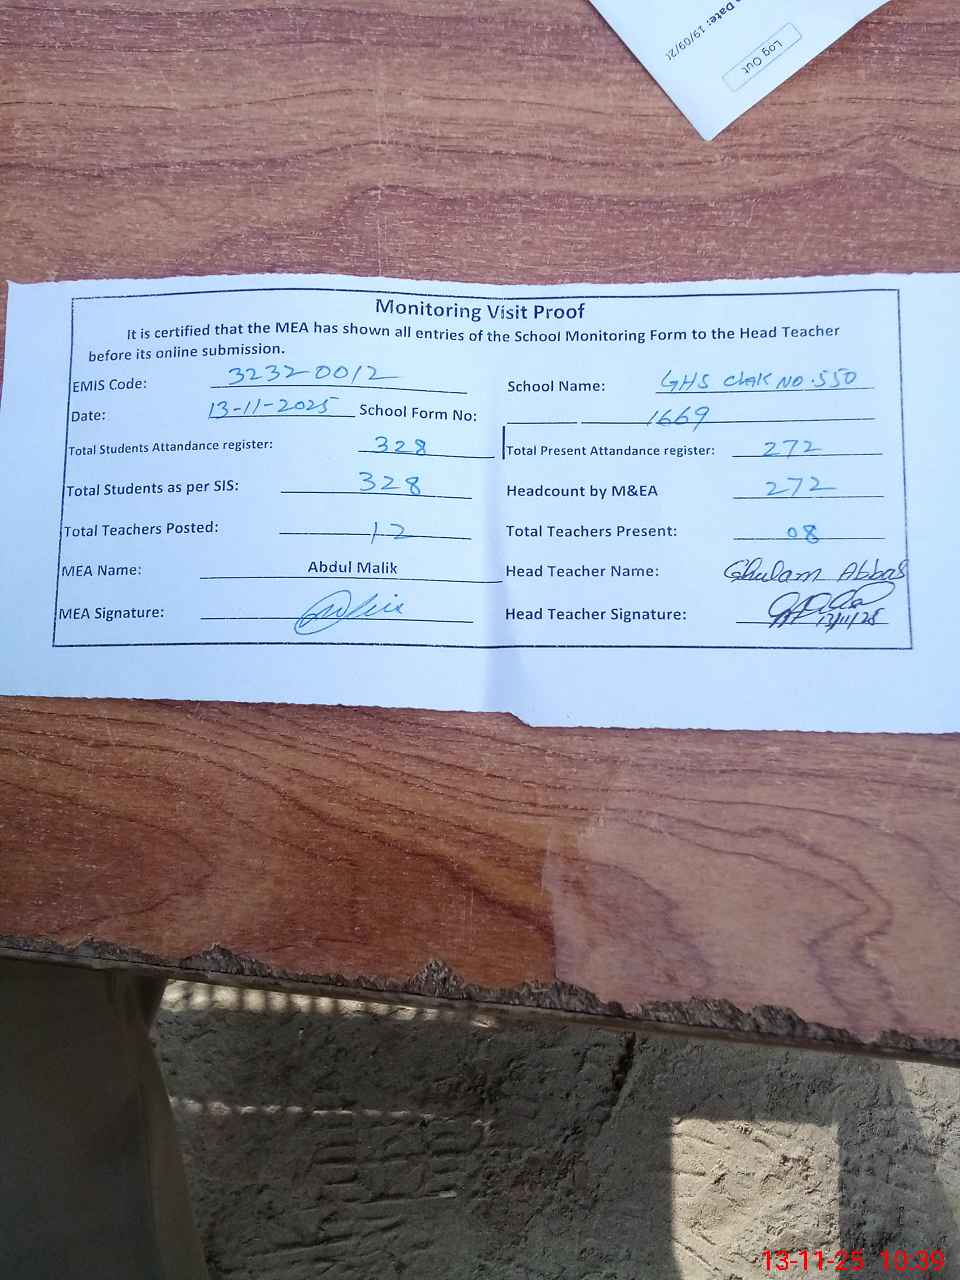 Date: 19/09/2
Log Out
Monitoring Visit Proof
It is certified that the MEA has shown all entries of the School Monitoring Form to the Head Teacher
before its online submission.
EMIS Code: 32320012 School Name: GHS Chak NO.550
Date: 13-11-2025 School Form No: 1669
Total Students Attandance register: 328 Total Present Attandance register: 272
Total Students as per SIS: 328 Headcount by M&EA 272
Total Teachers Posted: 12 Total Teachers Present: 08
MEA Name: Abdul Malik Head Teacher Name: Ghulam Abbas
MEA Signature: Head Teacher Signature:
13/11/25
13-11-25 10:39